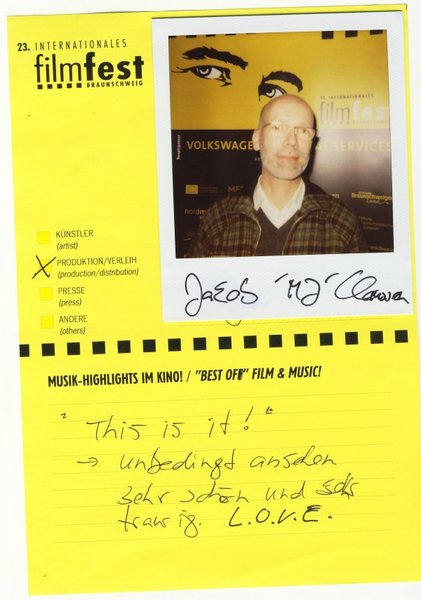 23. INTERNATIONALES
filmfest
BRAUNSCHWEIG
23. INTERNATIONALES
filmfest
BRAUNSCHWEIG
VOLKSWAGE
AL SERVICES
KÜNSTLER
(artist)
X PRODUKTION/VERLEIH
(production/distribution)
PRESSE
(press)
ANDERE
(others)
Jakob "MJ"
MUSIK-HIGHLIGHTS IM KINO! / "BEST OF" FILM & MUSIC!
"This is it!"
→ unbedingt ansehen
sehr schön und sehr
traurig. L.O.V.E.